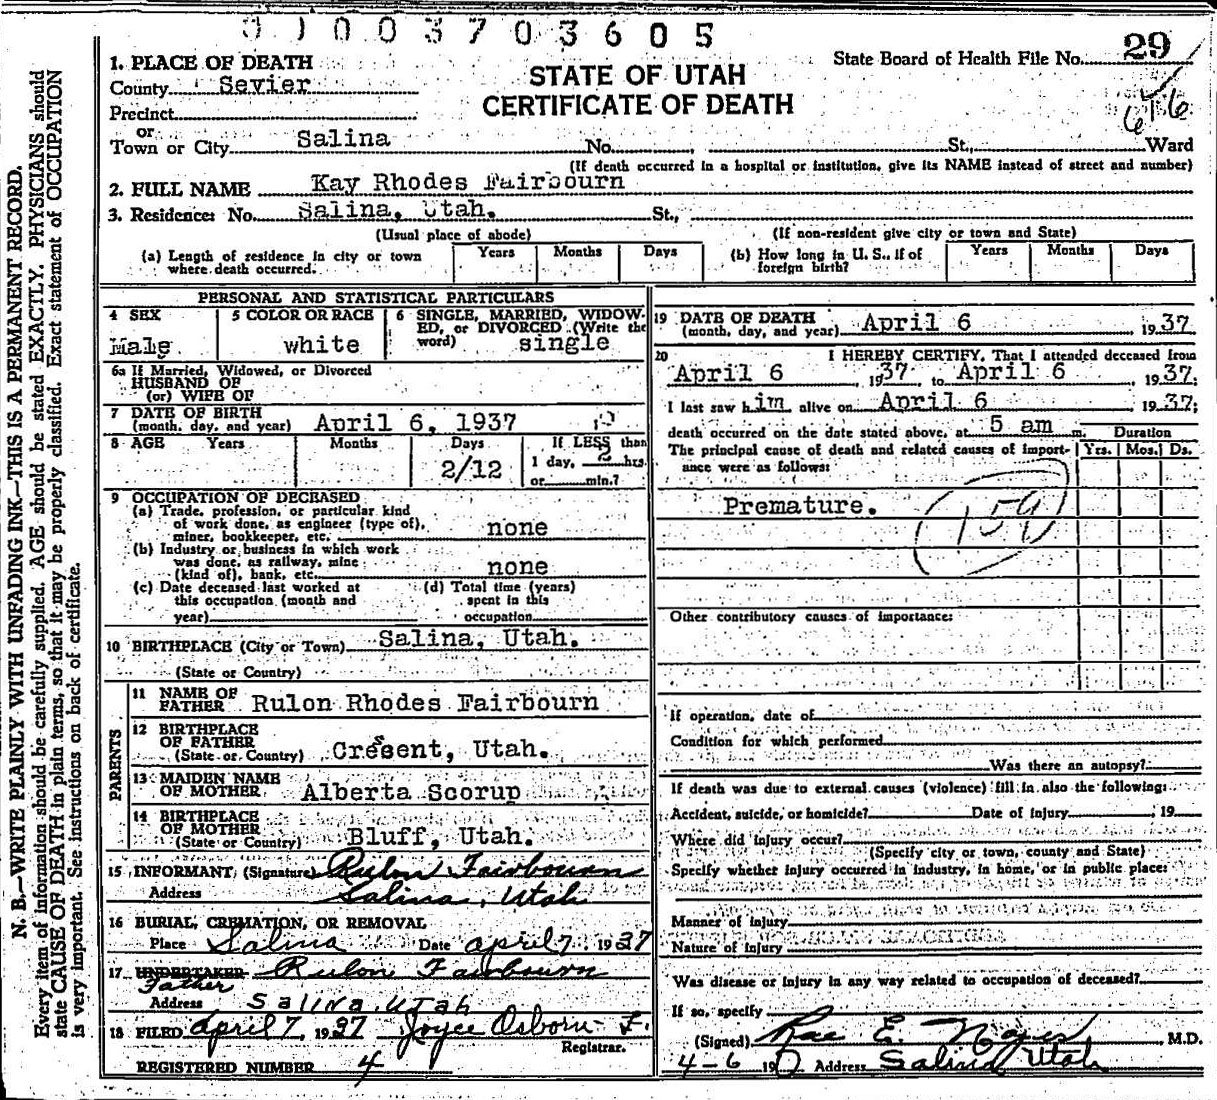 01003703605
State Board of Health File No. 29
616
STATE OF UTAH
CERTIFICATE OF DEATH
1. PLACE OF DEATH
County Sevier
Precinct
or
Town or City Salina No. , St., Ward
(If death occurred in a hospital or institution, give its NAME instead of street and number)
2. FULL NAME Kay Rhodes Fairbourn
3. Residence: No. Salina, Utah. St.,
(Usual place of abode) (If non-resident give city or town and State)
(a) Length of residence in city or town where death occurred. Years Months Days
(b) How long in U. S., if of foreign birth? Years Months Days
PERSONAL AND STATISTICAL PARTICULARS
4 SEX Male
5 COLOR OR RACE white
6 SINGLE, MARRIED, WIDOWED, or DIVORCED (Write the word) single
6a If Married, Widowed, or Divorced
HUSBAND OF
(or) WIFE OF
7 DATE OF BIRTH
(month, day, and year) April 6, 1937
8 AGE Years Months Days If LESS than
2/12 1 day, 2 hrs.
or min.?
9 OCCUPATION OF DECEASED
(a) Trade, profession, or particular kind
of work done, as engineer (type of),
miner, bookkeeper, etc. none
(b) Industry or business in which work
was done, as railway, mine
(kind of), bank, etc. none
(c) Date deceased last worked at
this occupation (month and
year)
(d) Total time (years)
spent in this
occupation
10 BIRTHPLACE (City or Town) Salina, Utah.
(State or Country)
PARENTS
11 NAME OF
FATHER Rulon Rhodes Fairbourn
12 BIRTHPLACE
OF FATHER
(State or Country) Cresent, Utah.
13 MAIDEN NAME
OF MOTHER Alberta Scorup
14 BIRTHPLACE
OF MOTHER
(State or Country) Bluff, Utah.
15 INFORMANT (Signature) Rulon Fairbourn
Address Salina, Utah
16 BURIAL, CREMATION, OR REMOVAL
Place Salina Date April 7, 1937
17 UNDERTAKER Rulon Fairbourn
Father
Address Salina, Utah
18 FILED April 7, 1937 Joyce Osborn F.
Registrar.
REGISTERED NUMBER 4
19 DATE OF DEATH
(month, day, and year) April 6 , 1937
20 I HEREBY CERTIFY, That I attended deceased from
April 6 , 1937 to April 6 , 1937;
I last saw him alive on April 6 1937;
death occurred on the date stated above, at 5 am m. Duration
The principal cause of death and related causes of importance were as follows: Yrs. Mos. Ds.
Premature.
159
Other contributory causes of importance:
If operation, date of
Condition for which performed
Was there an autopsy?
If death was due to external causes (violence) fill in also the following:
Accident, suicide, or homicide? Date of injury , 19
Where did injury occur?
(Specify city or town, county and State)
Specify whether injury occurred in industry, in home, or in public place:
Manner of injury
Nature of injury
Was disease or injury in any way related to occupation of deceased?
If so, specify
(Signed) Rae E. Noyes , M.D.
4-6 1937 Address Salina Utah
N. B.—WRITE PLAINLY WITH UNFADING INK—THIS IS A PERMANENT RECORD.
Every item of information should be carefully supplied. AGE should be stated EXACTLY. PHYSICIANS should
state CAUSE OF DEATH in plain terms, so that it may be properly classified. Exact statement of OCCUPATION
is very important. See instructions on back of certificate.